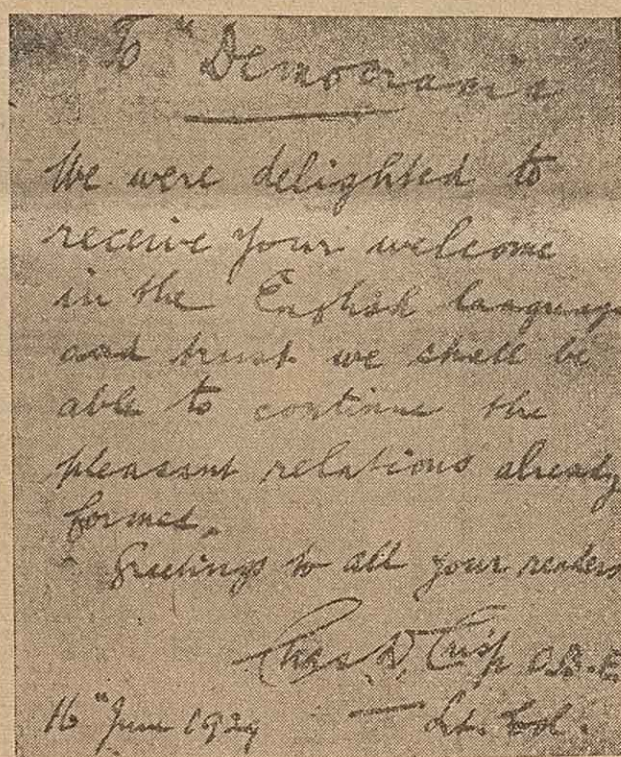 To "Democracia"
We were delighted to
receive your welcome
in the English language
and trust we shall be
able to continue the
pleasant relations already
formed.
Greetings to all your readers
Chas. D. Crisp O.B.E
16th June 1929 Lt. Col.